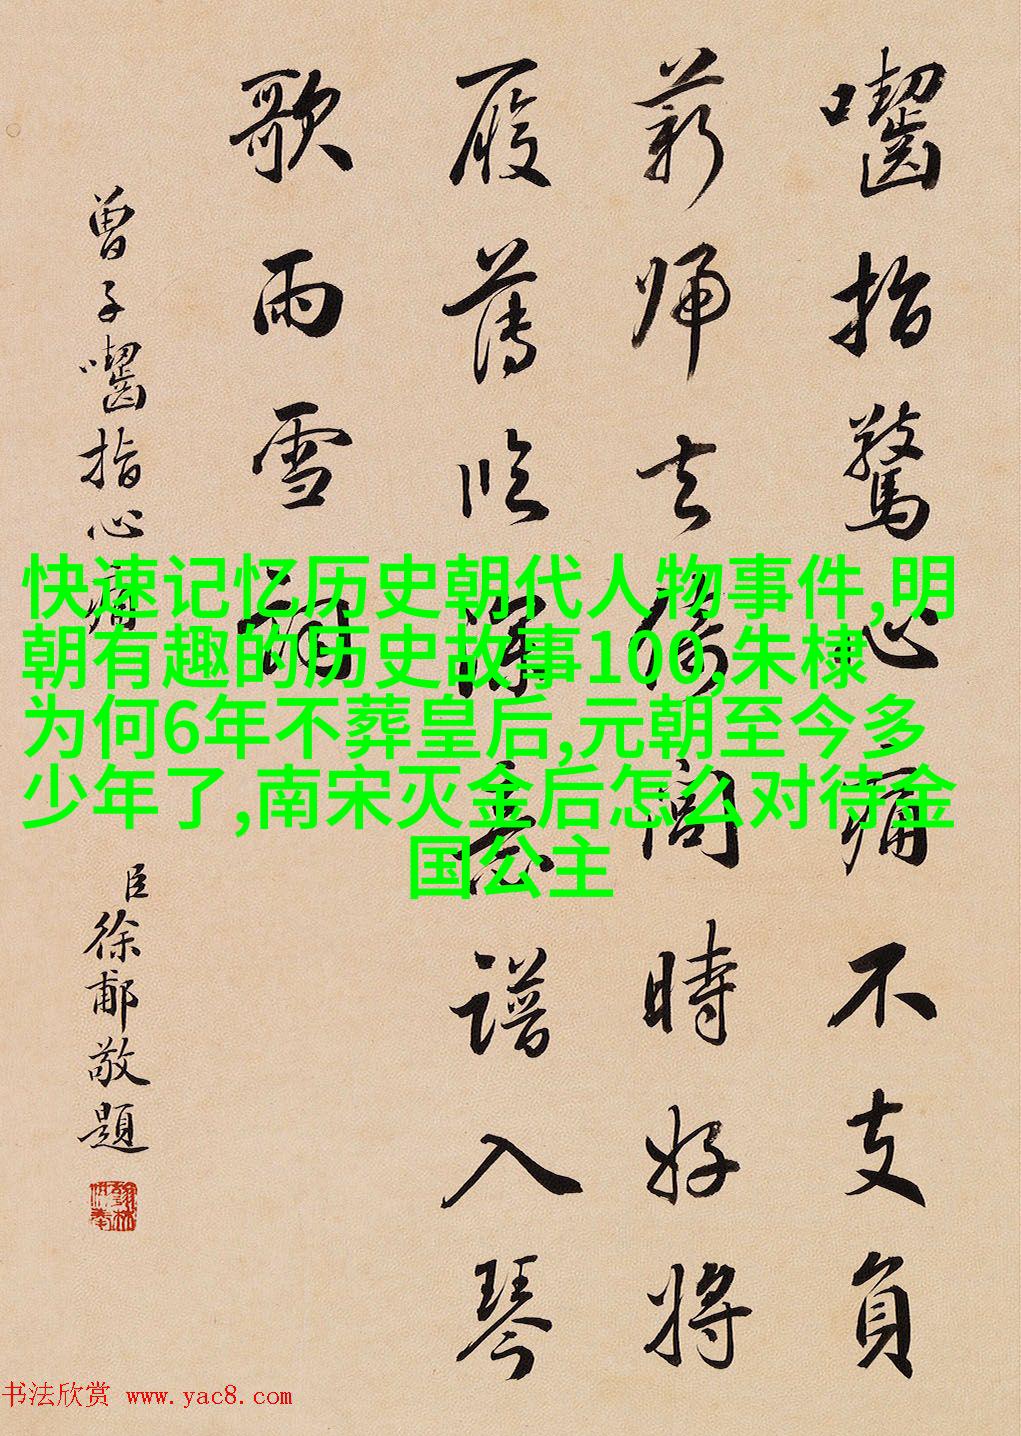 囓指驚心痛不支負
薪歸去時好將
履薄臨深意譜入琴
歌雨雪詞
曾子囓指心痛
臣徐郙敬題
快速记忆历史朝代人物事件,明
朝有趣的历史故事100,朱棣
为何6年不葬皇后,元朝至今多
少年了,南宋灭金后怎么对待金
国公主
书法欣赏 www.yac8.com